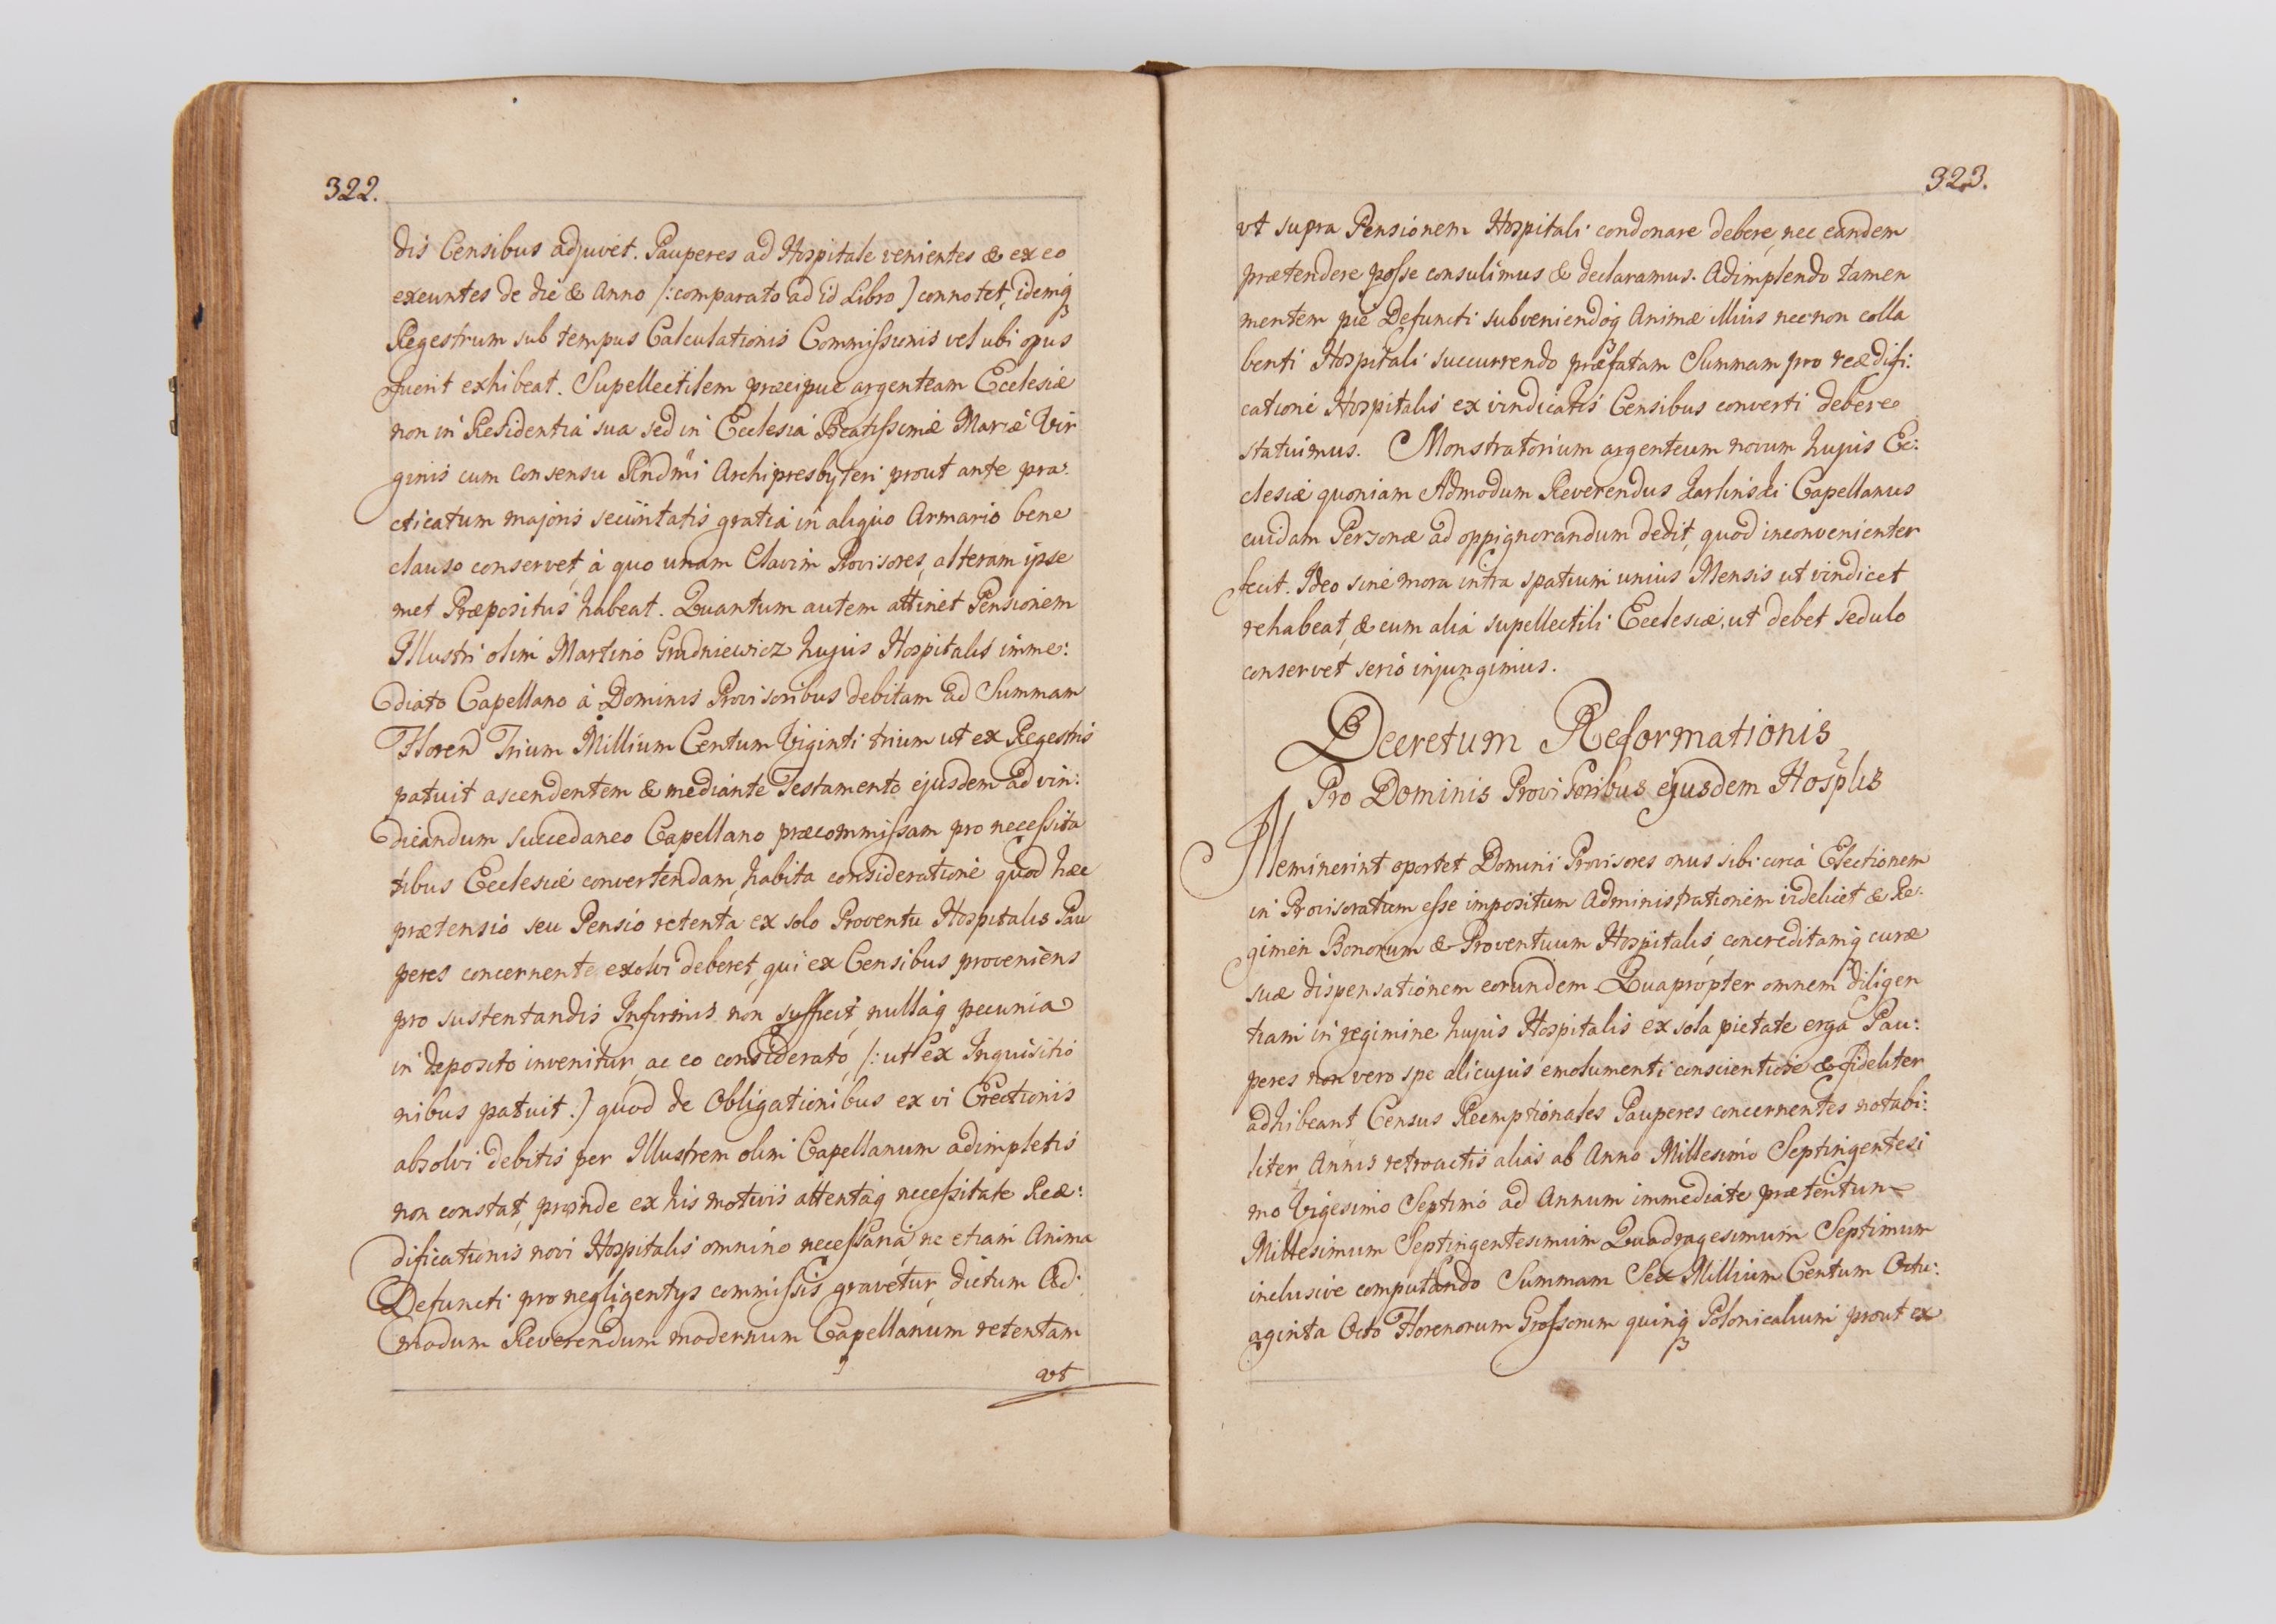 322.
dis Censibus adjuvet. Pauperes ad Hospitale venientes & ex eo
exeuntes de die & Anno /: comparato ad id Libro ) connotet, idemq
Regestrum sub tempus Calculationis Commissionis vel ubi opus
fuerit exhibeat. Supellectilem præcipue argenteam Ecclesiæ
non in Residentiâ sua sed in Ecclesiâ Beatissimæ Mariæ Vir
ginis cum Consensu Rndmi Archipresbyteri prout ante pra:
cticatum majoris securitatis gratiâ in aliquo Armario bene
clauso conservet, à quo unam Clavim Provisores, alteram ipse
met Præpositus habeat. Quantum autem attinet Pensionem
Illustri olim Martino Grudniewicz hujus Hospitalis imme:
diato Capellano à Dominis Provisoribus debitam ad Summam
Floren Trium Millium Centum Viginti trium ut ex Regestris
patuit ascendentem & mediante Testamento ejusdem ad vin:
dicandum succedaneo Capellano præcommissam pro necessita
tibus Ecclesiæ convertendam, habita consideratione quod hæc
prætensio seu Pensio retenta, ex solo Proventu Hospitalis Pau
peres concernente exolvi deberet, qui ex Censibus proveniens
pro sustentandis Infirmis non sufficit, nullaq pecunia
in deposito invenitur, ac eo considerato, /: ut ex Inquisitio
nibus patuit.) quod de Obligationibus ex vi Erectionis
absolvi debitis per Illustrem olim Capellanum adimpletis
non constat, proinde ex his motivis attentaq necessitate Reæ:
dificationis novi Hospitalis omnino necessaria, ne etiam Anima
Defuncti pro negligentys commissis gravetur, dictum Ad:
modum Reverendum modernum Capellanum retentam
vt
323.
vt supra Pensionem Hospitali condonare debere, nec eandem
prætendere posse consulimus & declaramus. Adimplendo tamen
mentem pie Defuncti subveniendoq Animæ illius necnon colla
benti Hospitali succurrendo præfatam Summam pro reædifi:
catione Hospitalis ex vindicatis Censibus converti debere
statuimus. Monstratorium argenteum novum hujus Ec:
clesiæ quoniam Admodum Reverendus Capellanus
cuidam Personæ ad oppignorandum dedit, quod inconvenienter
fecit. Ideo sine mora intra spatium unius Mensis ut vindicet
rehabeat, & cum alia supellectili Ecclesiæ, ut debet sedulo
conservet, serio injungimus.
Decretum Reformationis
Pro Dominis Provisoribus ejusdem Hosplis
Meminerint oportet Domini Provisores onus sibi circa Electionem
in Provisoratum esse impositum Administrationem videlicet & Re:
gimen Bonorum & Proventuum Hospitalis, concreditamq curæ
suæ dispensationem eorundem Quapropter omnem diligen
tiam in regimine hujus Hospitalis ex sola pietate erga Pau:
peres non vero spe alicujus emolumenti conscientiose & fideliter
adhibeant Census Reemptionales Pauperes concernentes notabi:
liter, Annis retroactis alias ab Anno Millesimo Septingentesi
mo Vigesimo Septimo ad Annum immediate præteritum
Millesimum Septingentesimum Quadragesimum Septimum
inclusive computando Summam Sex Millium Centum Octu:
aginta Octo Florenorum Grossorum quinq Polonicalium prout ex